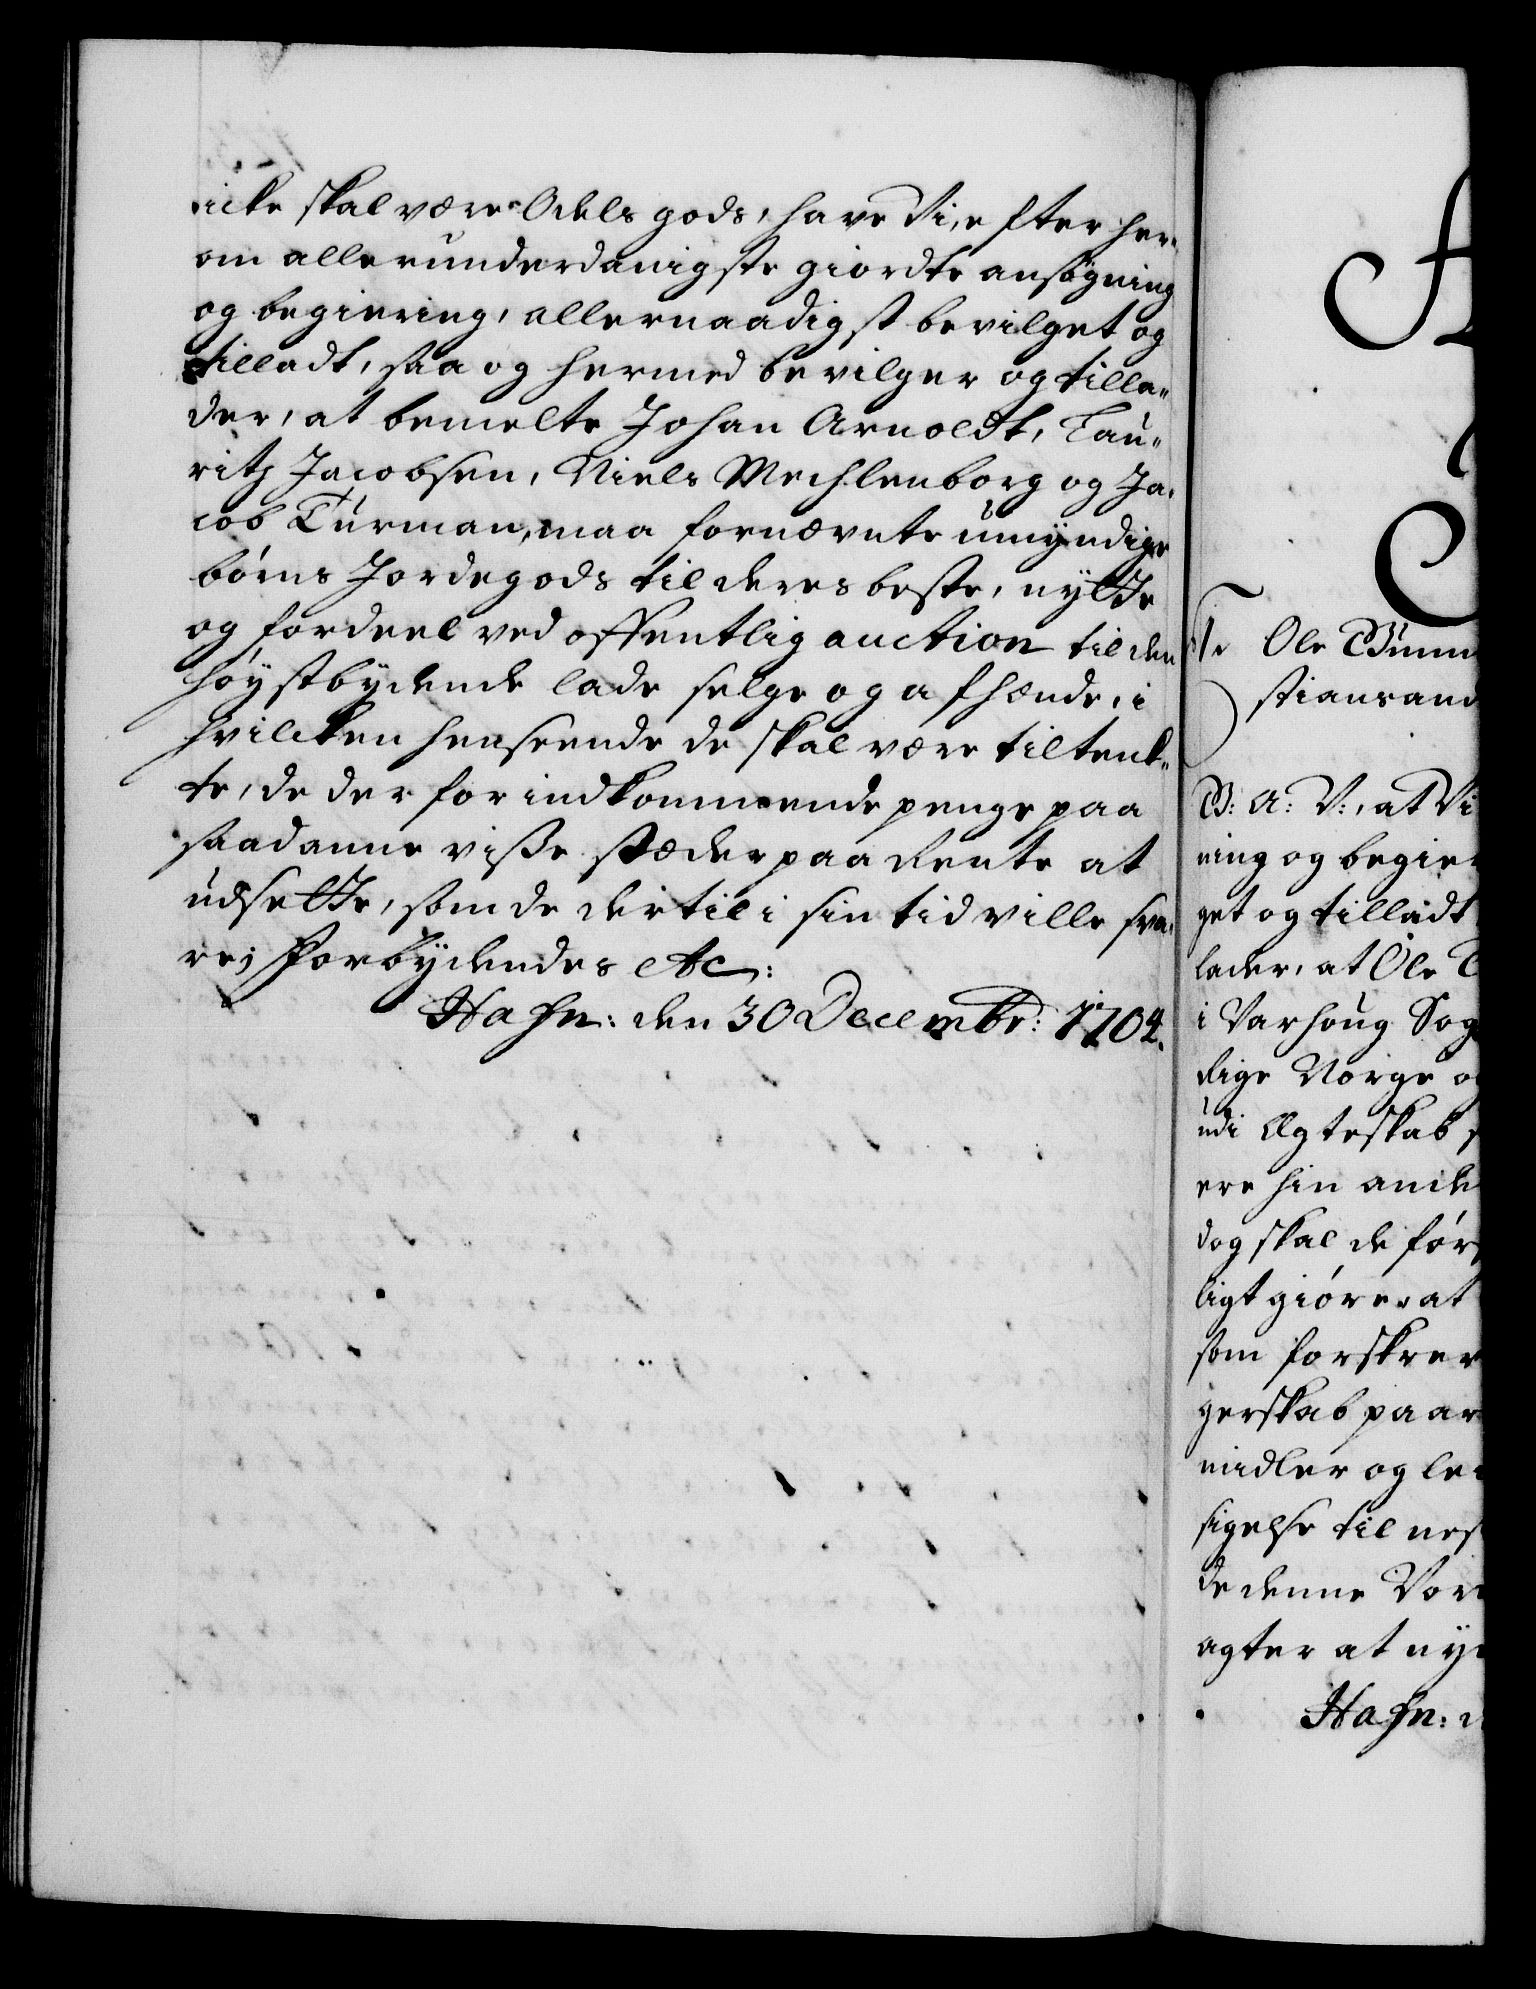 icke skal være Odels gods, have Vi, efter her,,
om allerunderdanigste giordte ansøgning
og begiering, allernaadigst bevilget og
tilladt, saa og hermed bevilger og tilla,,
der, at bemelte Johan Arnoldt, Lau,,
ritz Jacobsen, Niels Mechlenborg og Ja,,
cob Turman, maa fornævnte umyndige
børns Jordegods til deres beste, nytte
og fordeel ved offentlig auction til den
høystbydende lade selge og afhænde, i
hvilcken henseende de skal være tiltenk,,
te, de der for indkommende penge paa
saadanne visse stæder paa Rente at
udsette, som de dertil i sin tid ville sva,,
re; Forbydendes etc:
Hafn: den 30 Decembr: 1704.
Ole
stiansand
B: A: V:, at Vi
ning og begier
get og tilladt
lader, at Ole
i Varhoug Sog
dige Norge og
udi Ægteskab
ere hin anden
dog skal de før
ligt giøre, at
som forskrev
gerskab paa
midler og
sigelse til nes
de denne Vor
agter at nyde
Hafn: d